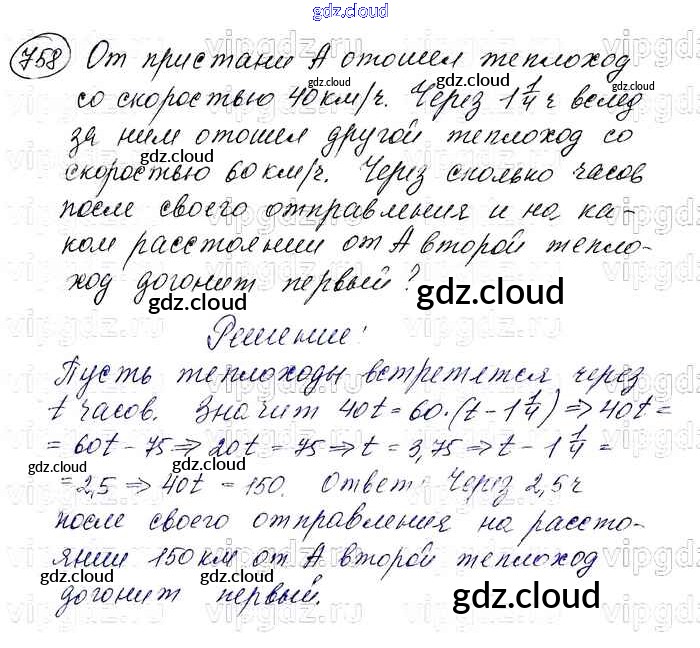 gdz.cloud
758 От пристани А отошел теплоход
со скоростью 40 км/ч. Через 1 1/4 ч вслед
за ним отошел другой теплоход со
скоростью 60 км/ч. Через сколько часов
после своего отправления и на ка-
ком расстоянии от А второй тепло-
ход догонит первый?
gdz.cloud
Решение:
Пусть теплоходы встретятся через
t часов. Значит 40t = 60·(t - 1 1/4) ⇒ 40t =
= 60t - 75 ⇒ 20t = 75 ⇒ t = 3,75 ⇒ t - 1 1/4 =
= 2,5 ⇒ 40t = 150. Ответ: Через 2,5 ч
после своего отправления на рассто-
янии 150 км от А второй теплоход
догонит первый.
gdz.cloud